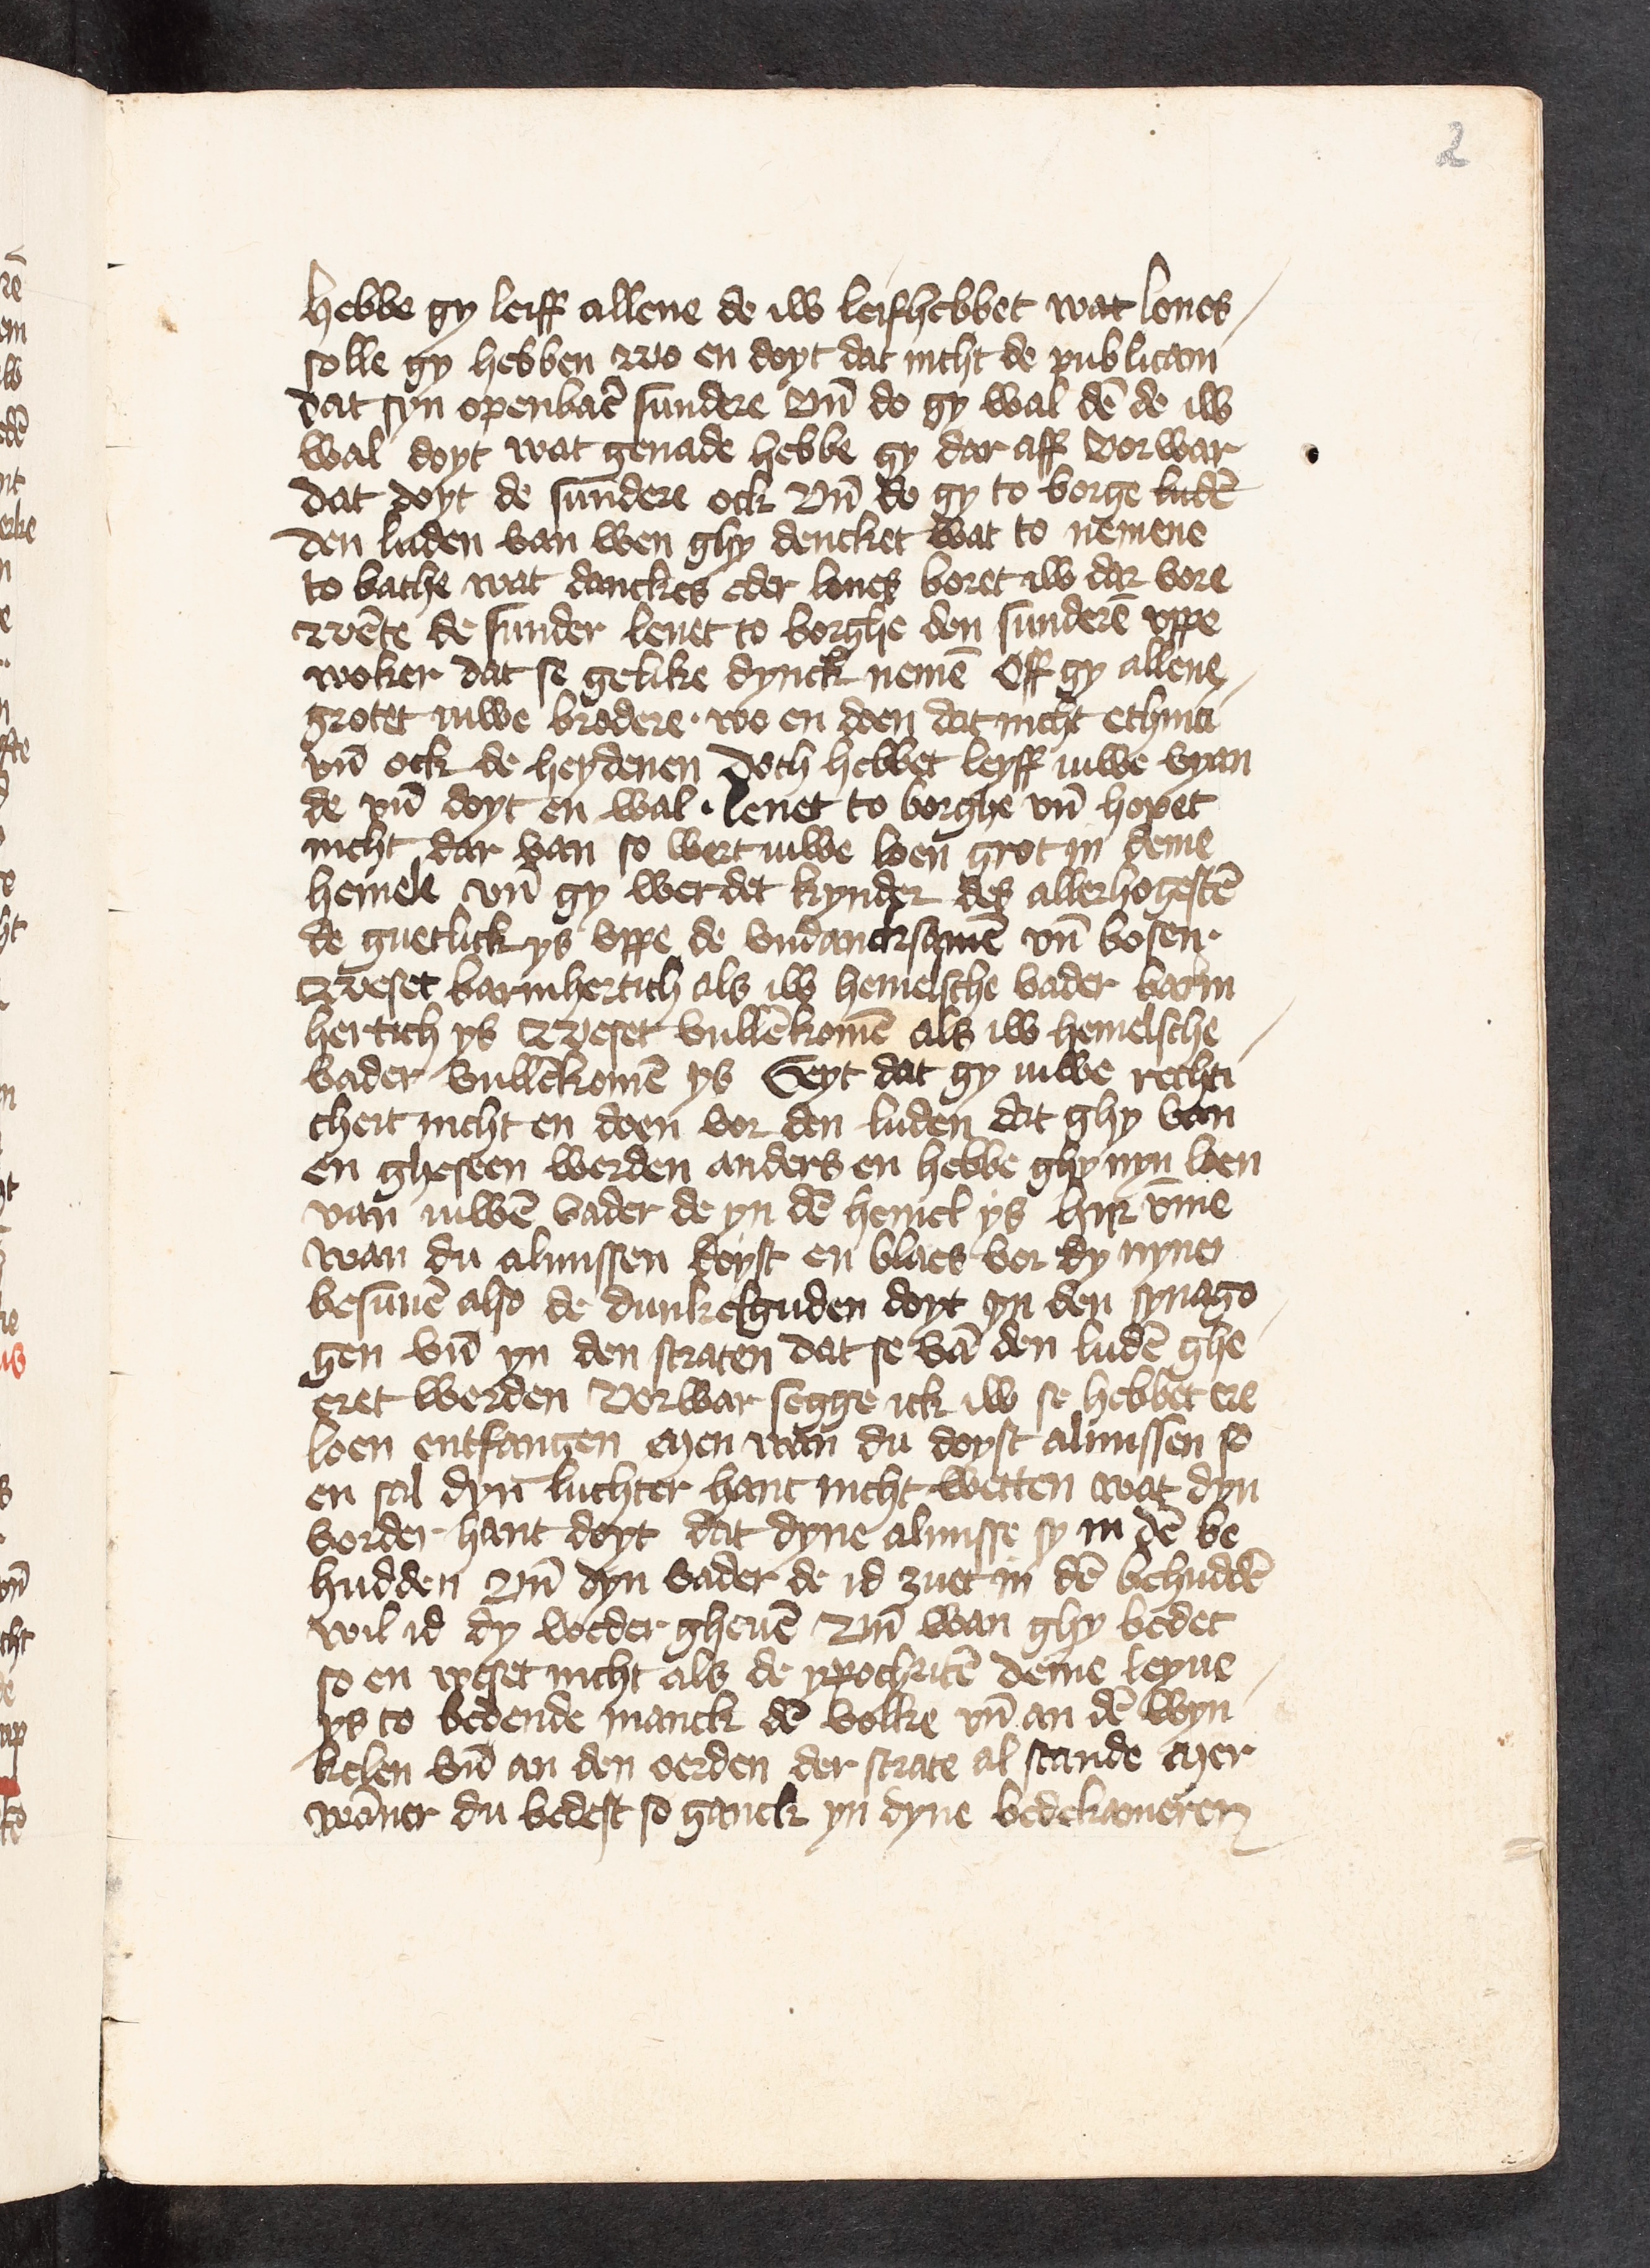 2
hebbe gy leiff allene de iw leifhebbet wat lones
solle gy hebben Wo en doyt dat nicht de publicani
dat syn openbar̄ sundere Vn̄ do gy wal dē de iw
wal doyt wat genade hebbe gy dar aff Vorwar
dat doyt de sundere ock Vn̄ do gy to borge ludē
den luden van wen ghy dencket wat to nemene
to bathe wat danckes eder lones boret iw dar vore
Wēte de sunder lenet to borghe den sunderē vppe
woker dat se gelike dynck nemē Off gy allene
grotet iuwe brodere · wo en doen dat nicht ethnici
vn̄ ock de heydenen Doch hebbet leyff iuwe vyan
de vn̄ doyt en wal · lenet to borghe vn̄ hopet
nicht dar van so wert iuwe loen grot in deme
hemele vn̄ gy werdet kynder des allerhogestē
de guetlick ys vppe de vndancksamē vn̄ bosen ·
Weset barmhertich als iw hemelsche vader barm
hertich ys Weset vullēkomē als iw hemelsche
vader vullēkomē ys Seyt dat gy iuwe rechti
cheit nicht en doen vor den luden dat ghy van
en gheseen werden anders en hebbe ghy nyn loen
van iuwē vader de yn dē hemel ys hir v̄me
wan du almissen doyst en blaes vor dy nyne
besunē also de dunkelguden doyt yn den synago
gen vn̄ yn den straten dat se vā den ludē ghe
eret werden Vorwar segge ick iw se hebbet ere
loen entfangen Men wan du doyst almissen so
en sal dyn luchter hant nicht wetten wat dyn
vorder hant doyt dat dyne almisse sy in dē be
hudden Vn̄ dyn vader de id zuet in dē behuddē
wil id dy weder gheuē Vn̄ wan ghy bedet
so en weset nicht als de ypochritē deme leyue
ys to bedende manck dē volke vn̄ an dē wyn
kelen vn̄ an den oerden der strate al stande Mer
wāner du bedest so ganck yn dyne bedekameren